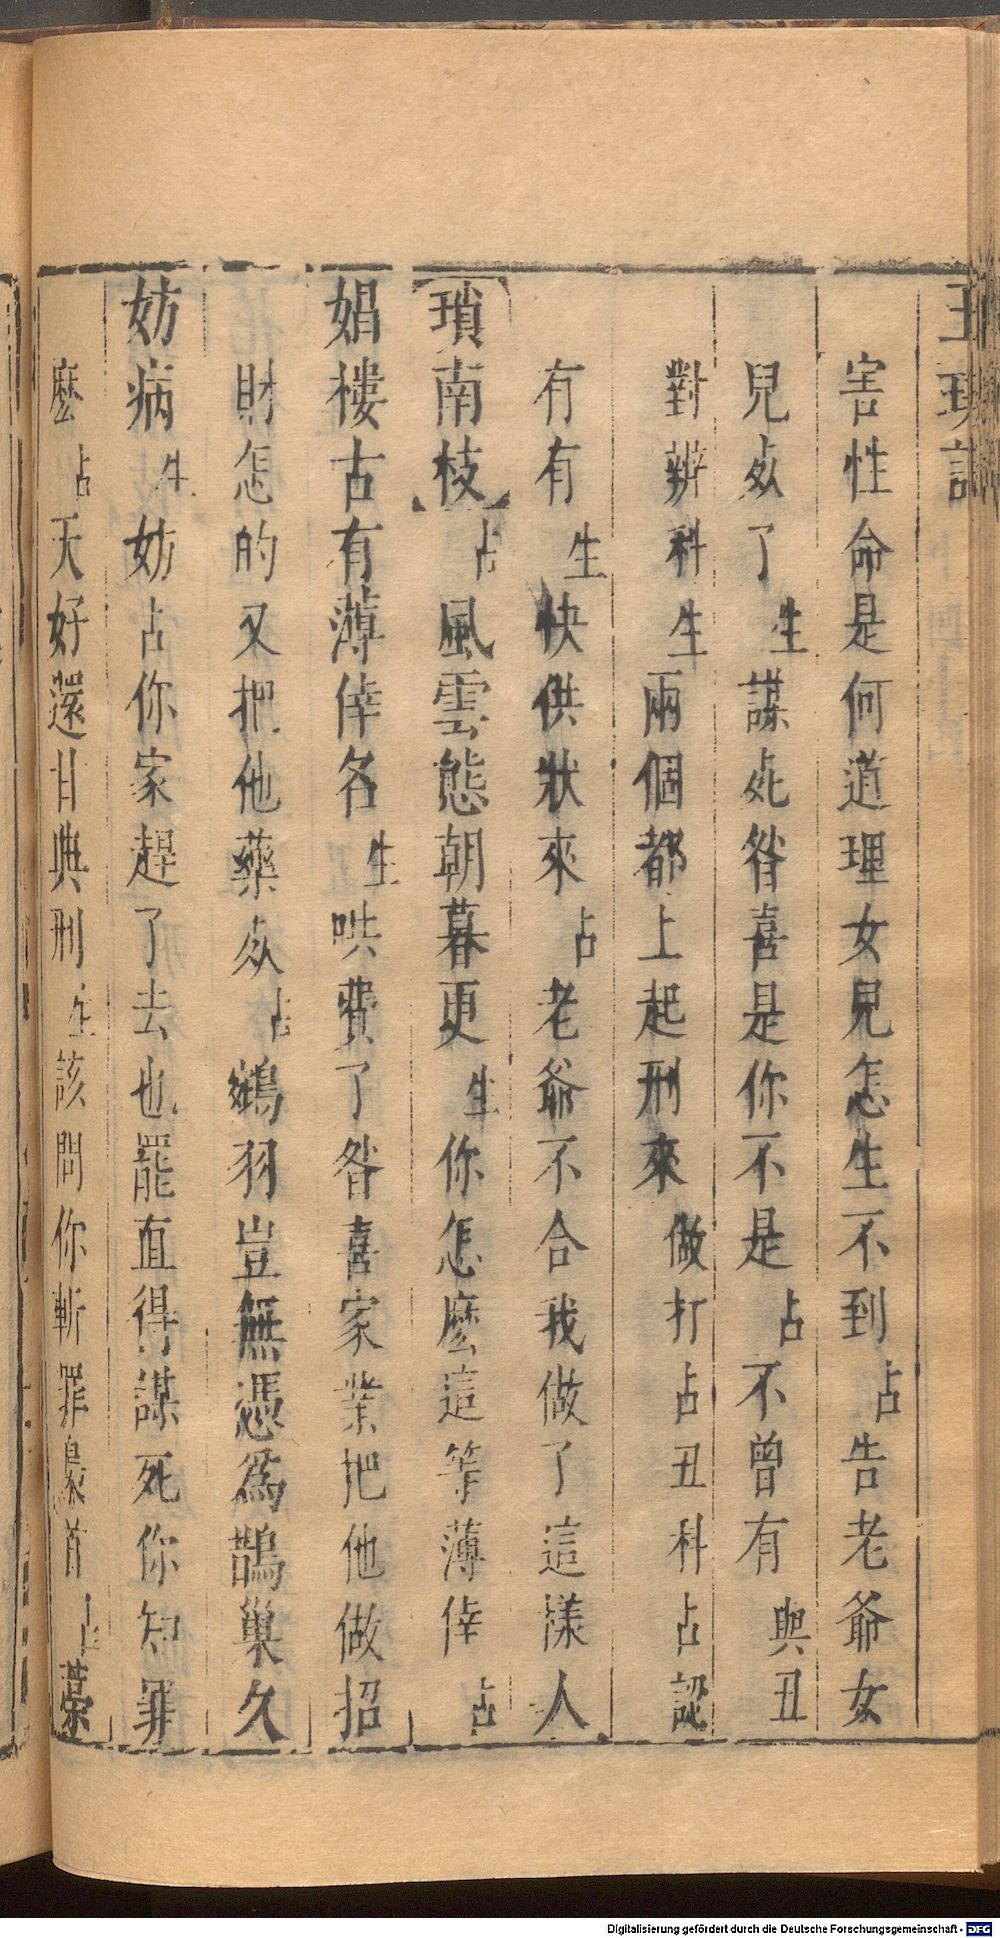 害性命是何道理女兒怎生不到占告老爺女
兒㱽了生謀㱽昝喜是你不是占不曾有與丑
對辨科生兩個都上起刑來做打占丑科占認
有有生快供狀來占老爺不合我做了這樣人
瑣南枝占風雲態朝暮更生你怎麽這等薄倖占
娼樓古有薄倖名生哄費了昝喜家業把他做招
財怎的又把他藥㱽占鵷羽豈無憑爲鵲巢久
妨病生妨占你家趕了去也罷直得謀死你知罪
麽占天好還甘典刑生該問你斬罪梟首占藁
Digitalisierung gefördert durch die Deutsche Forschungsgemeinschaft - DFG